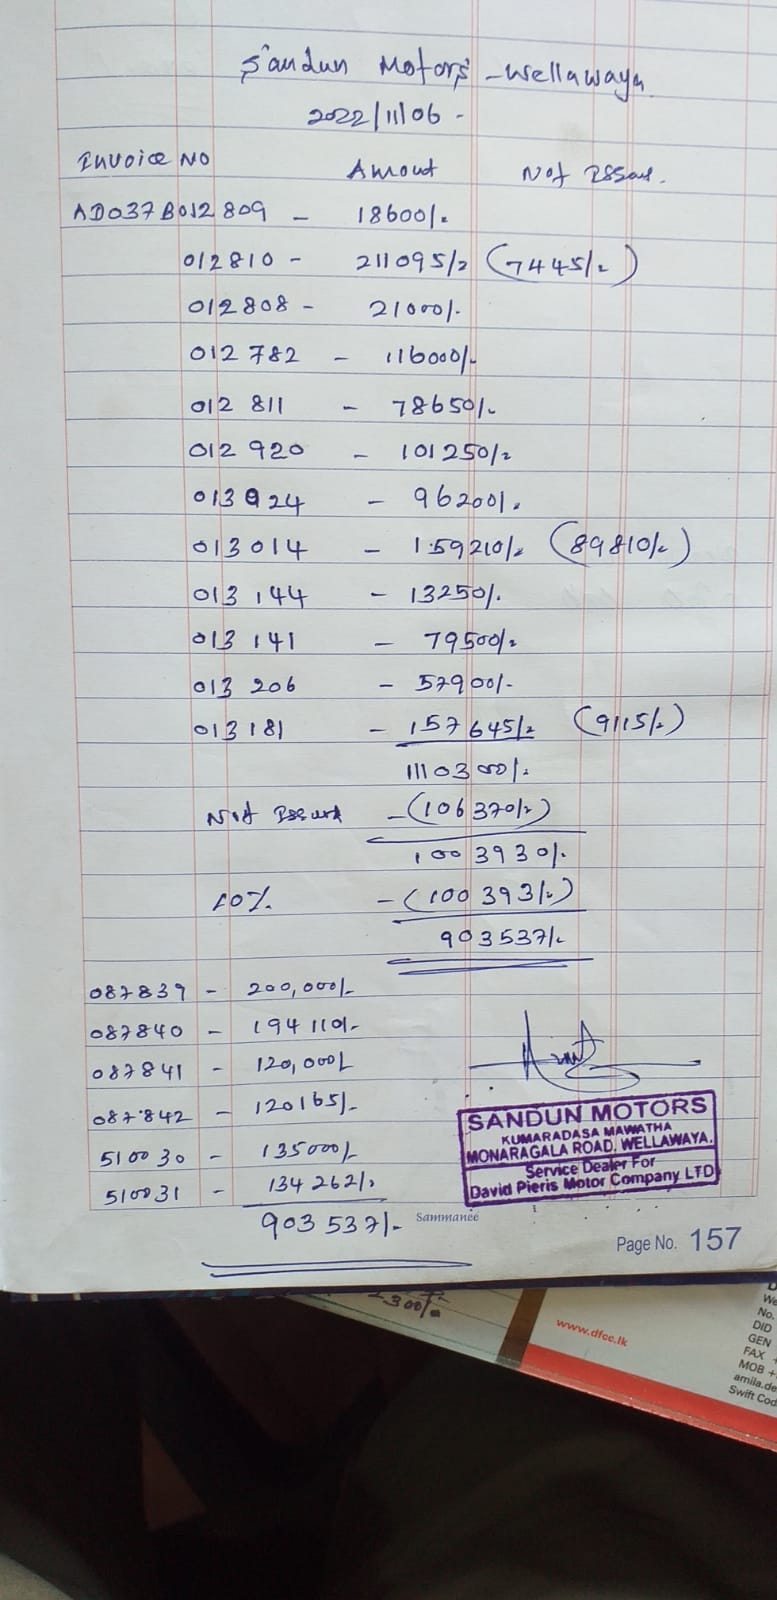 Sandun Motors - Wellawaya
2022/11/06 -
Invoice No Amout Not Issue.
AD037B012809 - 18600/-
012810 - 211095/- (7445/-)
012808 - 21000/-
012782 - 116000/-
012811 - 78650/-
012920 - 101250/-
013924 - 96200/-
013014 - 159210/- (89810/-)
013144 - 13250/-
013141 - 79500/-
013206 - 57900/-
013181 - 157645/- (9115/-)
1110300/-
Not Issued - (106370/-)
1003930/-
10% - (100393/-)
903537/-
087839 - 200,000/-
087840 - 194110/-
087841 - 120,000/-
087842 - 120165/-
510030 - 135000/-
510031 - 134262/-
903537/-
SANDUN MOTORS
KUMARADASA MAWATHA
MONARAGALA ROAD, WELLAWAYA.
Service Dealer For
David Pieris Motor Company LTD
Sammanee
Page No. 157
2300/-
www.dfcc.lk
D
We
No.
DID
GEN
FAX +
MOB +
amila.de
Swift Cod